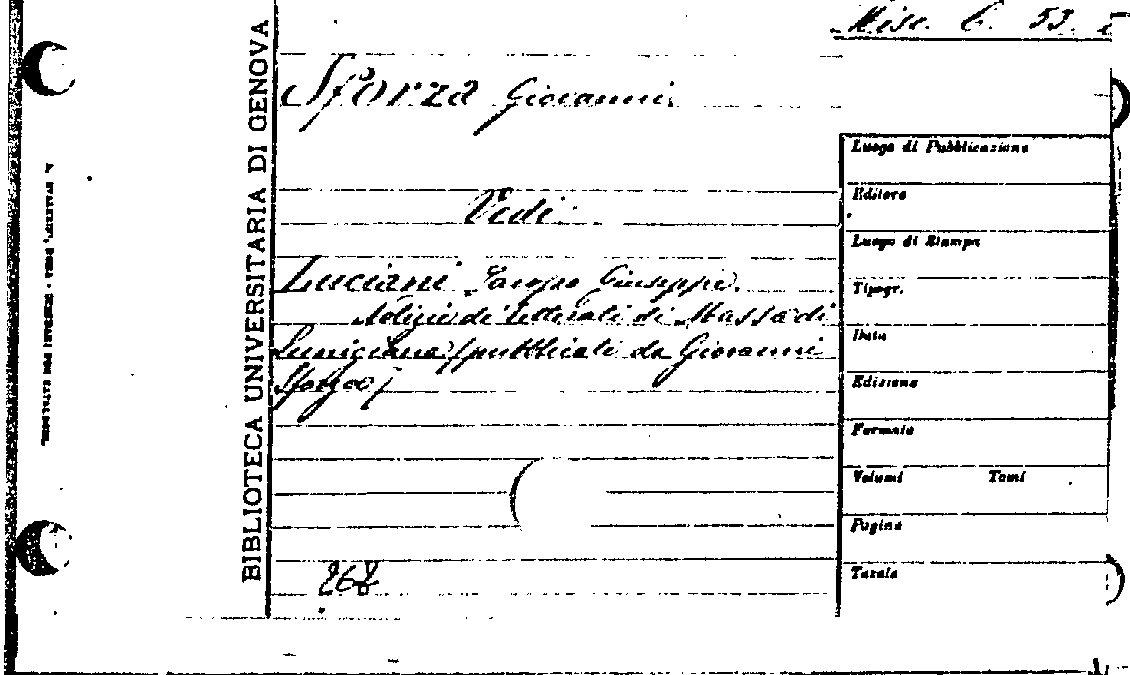 Misc. C. 53. 5
BIBLIOTECA UNIVERSITARIA DI GENOVA
Sforza Giovanni.
Vedi
Luciani Jacopo Giuseppe.
Notizie di letterati di Massa di
Lunigiana (pubblicati da Giovanni
Sforza)
Luogo di Pubblicazione
Editore
Luogo di Stampa
Tipogr.
Data
Edizione
Formato
Volumi Tomi
Pagine
Tavole